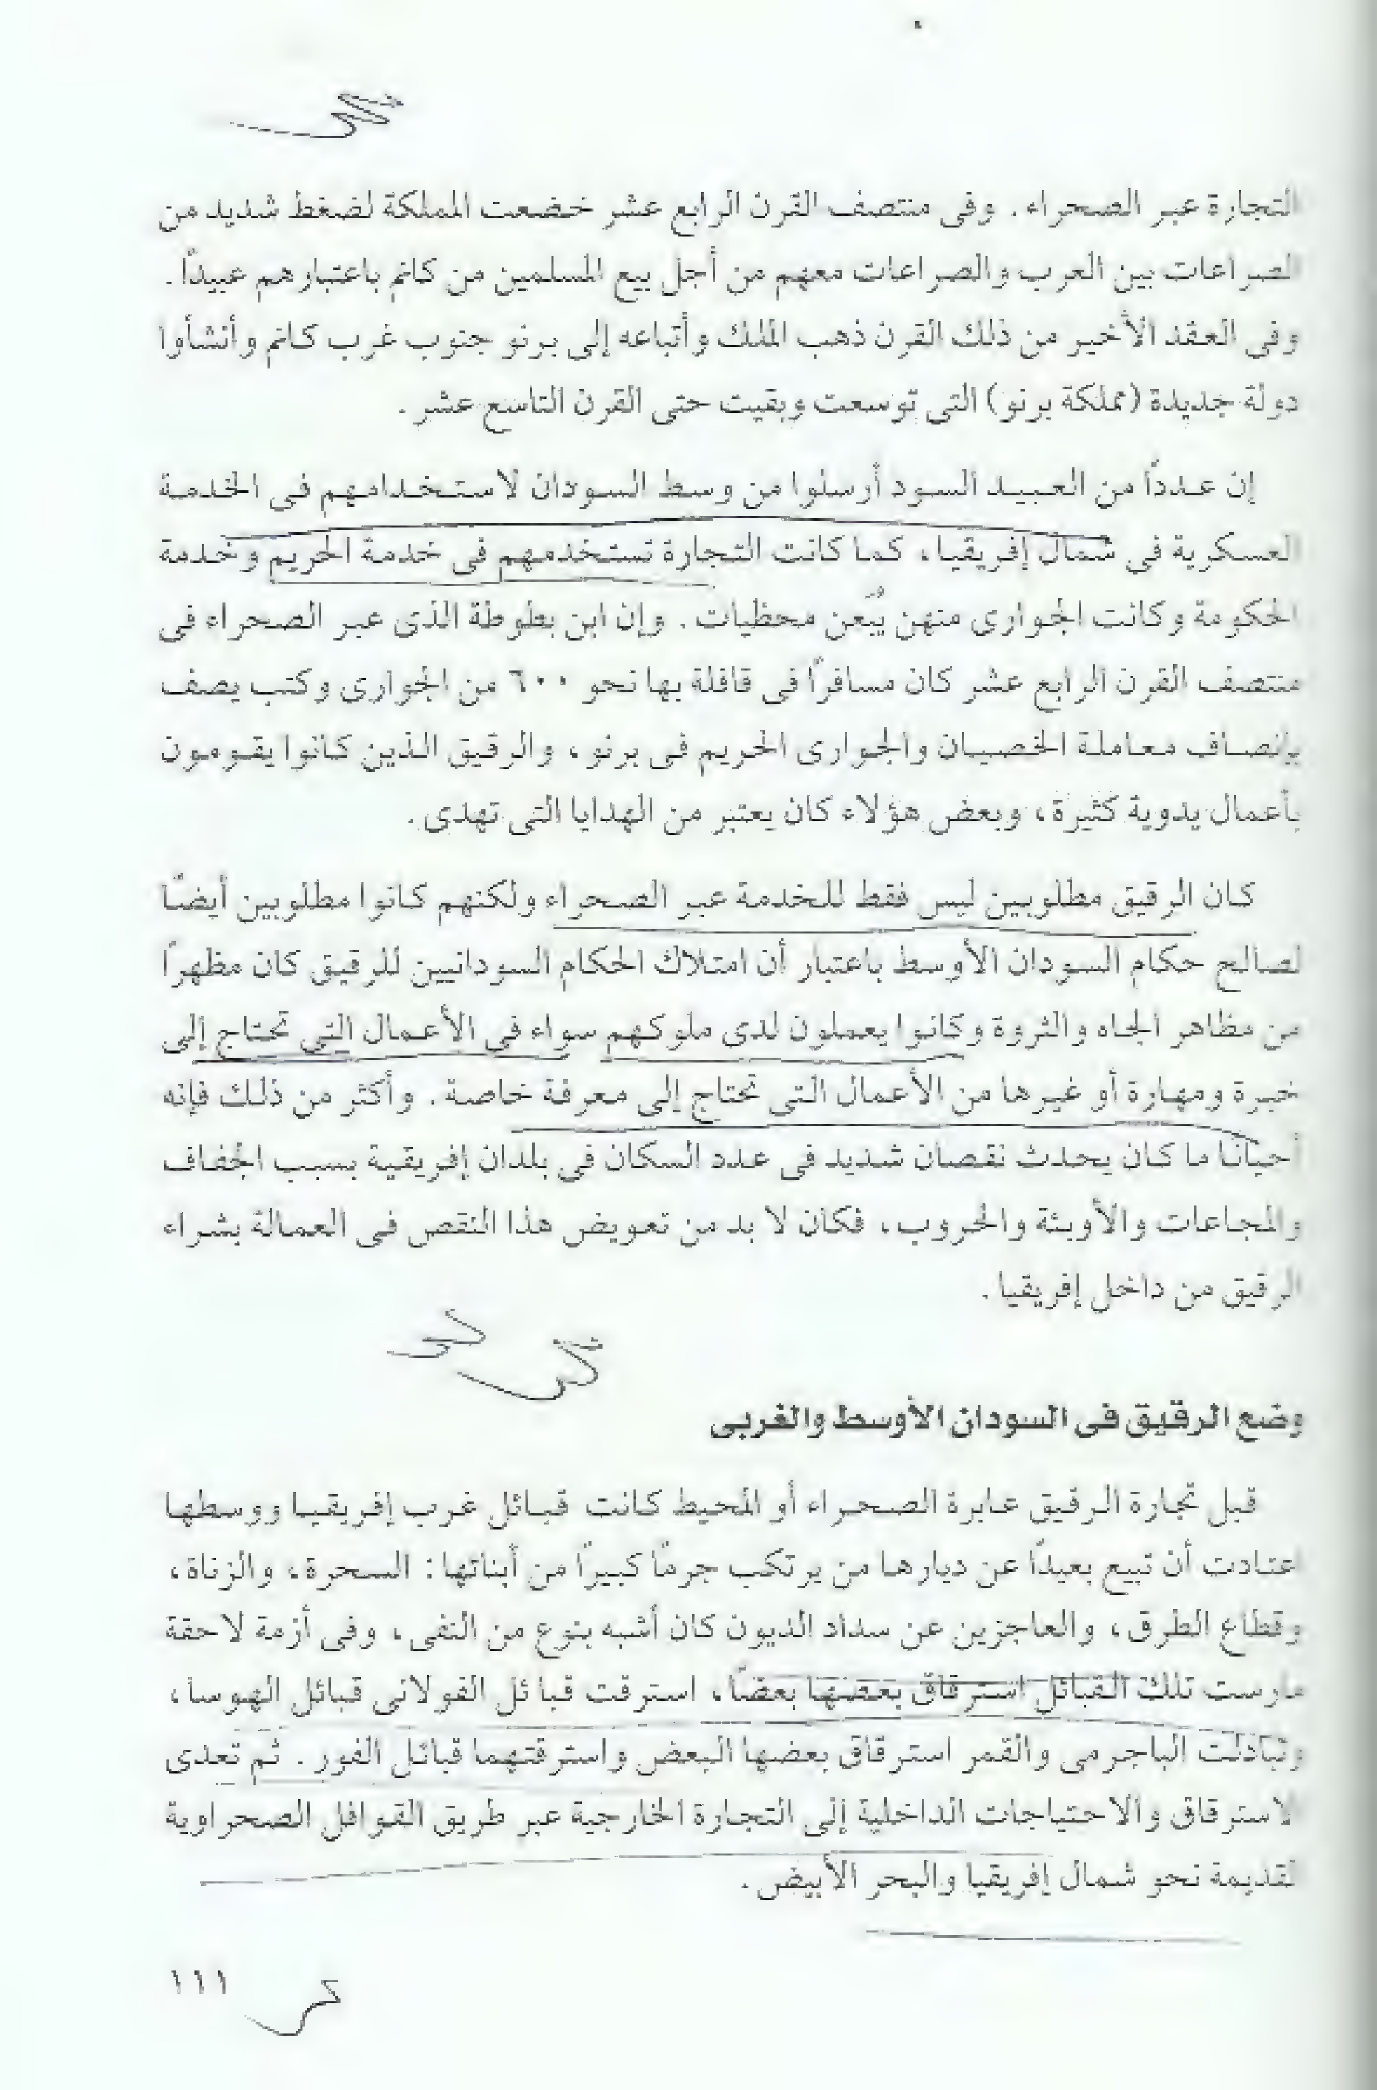 التجارة عبر الصحراء. وفى منتصف القرن الرابع عشر خضعت المملكة لضغط شديد من
الصراعات بين العرب والصراعات معهم من أجل بيع المسلمين من كانم باعتبارهم عبيدًا.
وفى العقد الأخير من ذلك القرن ذهب الملك وأتباعه إلى برنو جنوب غرب كانم وأنشأوا
دولة جديدة (مملكة برنو) التى توسعت وبقيت حتى القرن التاسع عشر.
إن عددًا من العبيد السود أرسلوا من وسط السودان لاستخدامهم فى الخدمة
العسكرية في شمال إفريقيا، كما كانت التجارة تستخدمهم فى خدمة الحريم وخدمة
الحكومة وكانت الجوارى منهن يُبَعن محظيات. وإن ابن بطوطة الذى عبر الصحراء فى
منتصف القرن الرابع عشر كان مسافرًا فى قافلة بها نحو ٦٠٠ من الجوارى وكتب يصف
بإنصاف معاملة الخصيان والجوارى الحريم فى برنو، والرقيق الذين كانوا يقومون
بأعمال يدوية كثيرة، وبعض هؤلاء كان يعتبر من الهدايا التى تهدى.
كان الرقيق مطلوبين ليس فقط للخدمة عبر الصحراء ولكنهم كانوا مطلوبين أيضًا
لصالح حكام السودان الأوسط باعتبار أن امتلاك الحكام السودانيين للرقيق كان مظهرًا
من مظاهر الجاه والثروة وكانوا يعملون لدى ملوكهم سواء فى الأعمال التى تحتاج إلى
خبرة ومهارة أو غيرها من الأعمال التى تحتاج إلى معرفة خاصة. وأكثر من ذلك فإنه
أحيانًا ما كان يحدث نقصان شديد فى عدد السكان في بلدان إفريقية بسبب الجفاف
والمجاعات والأوبئة والحروب، فكان لا بد من تعويض هذا النقص فى العمالة بشراء
الرقيق من داخل إفريقيا.
وضع الرقيق فى السودان الأوسط والغربى
قبل تجارة الرقيق عابرة الصحراء أو المحيط كانت قبائل غرب إفريقيا ووسطها
اعتادت أن تبيع بعيدًا عن ديارها من يرتكب جرمًا كبيرًا من أبنائها: السحرة، والزناة،
وقطاع الطرق، والعاجزين عن سداد الديون كان أشبه بنوع من النفى، وفى أزمة لاحقة
مارست تلك القبائل استرقاق بعضها بعضًا، استرقت قبائل الفولانى قبائل الهوسا،
وتبادلت الباجرمى والقمر استرقاق بعضها البعض واسترقتهما قبائل الفور. ثم تعدى
الاسترقاق والاحتياجات الداخلية إلى التجارة الخارجية عبر طريق القوافل الصحراوية
القديمة نحو شمال إفريقيا والبحر الأبيض.
١١١